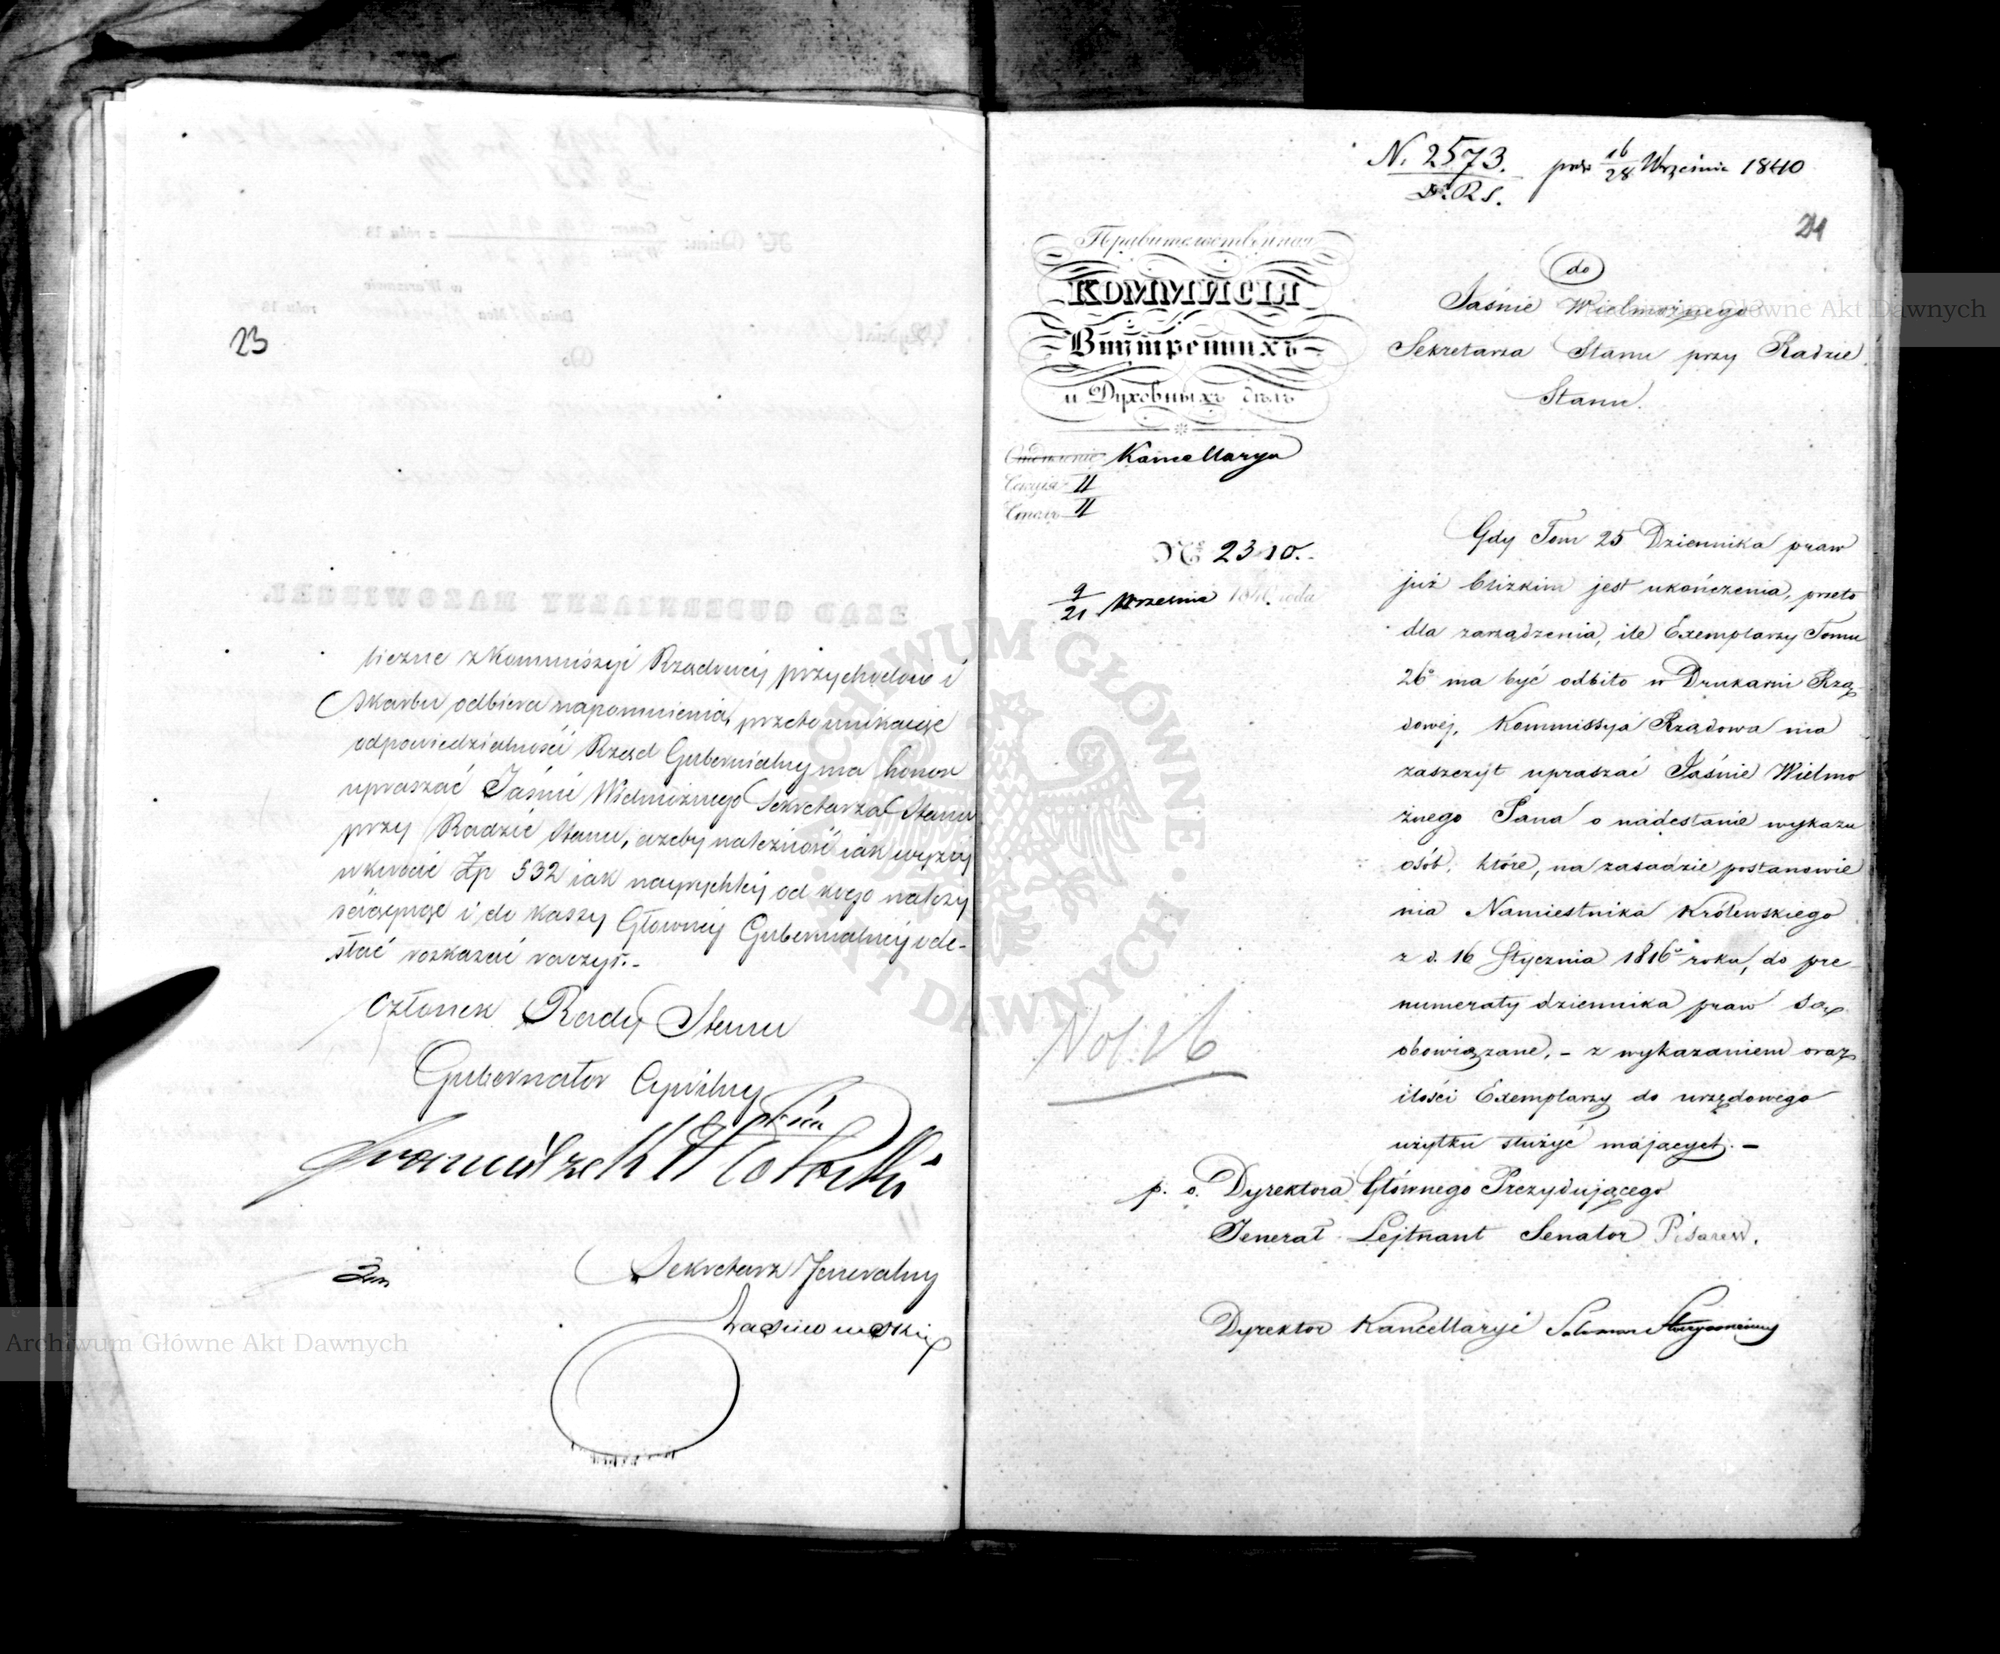 23
liczne z Kommissyi Rządowéj przychodów i
Skarbu odbiera napomnienia, przeto unikając
odpowiedzialności Rząd Gubernialny ma honor
upraszać Jaśnie Wielmożnego Sekretarza Stanu
przy Radzie Stanu, ażeby należność iak wyżej
w kwocie Zp 532 iak nayrychléj od kogo należy
ściągnąć i do Kassy Głównéj Gubernialnéj ode-
słać rozkazać raczył.-
Członek Rady Stanu
Gubernator Cywilny
Sekretarz Jeneralny
N. 2573. 16/28 Września 1840
D. R S.
24
Правительственная
КОММИСІЯ
Внутреннихъ
и Духовныхъ дѣлъ
Отдѣленіе Kancellarya
Секція II
Столъ II
№ 2310.
9/21 Września 1840 года
Vol 26
do
Jaśnie Wielmożnego
Sekretarza Stanu przy Radzie
Stanu.
Gdy Tom 25 Dziennika praw
już blizkim jest ukończenia, przeto
dla zarządzenia, ile Exemplarzy Tomu
26o ma być odbito w Drukarni Rzą-
dowej, Kommissyja Rządowa ma
zaszczyt upraszać Jaśnie Wielmo
żnego Pana o nadesłanie wykazu
osób, które, na zasadzie postanowie
nia Namiestnika Królewskiego
z d. 16 Stycznia 1816o roku, do pre-
numeraty dziennika praw są
obowiązane, - z wykazaniem oraz
ilości Exemplarzy do urzędowego
użytku służyć mających. -
p. o. Dyrektora Głównego Prezydującego
Jenerał Lejtnant Senator Pisarew.
Dyrektor Kancellaryi
ARCHIWUM GŁÓWNE AKT DAWNYCH
Archiwum Główne Akt Dawnych
Archiwum Główne Akt Dawnych